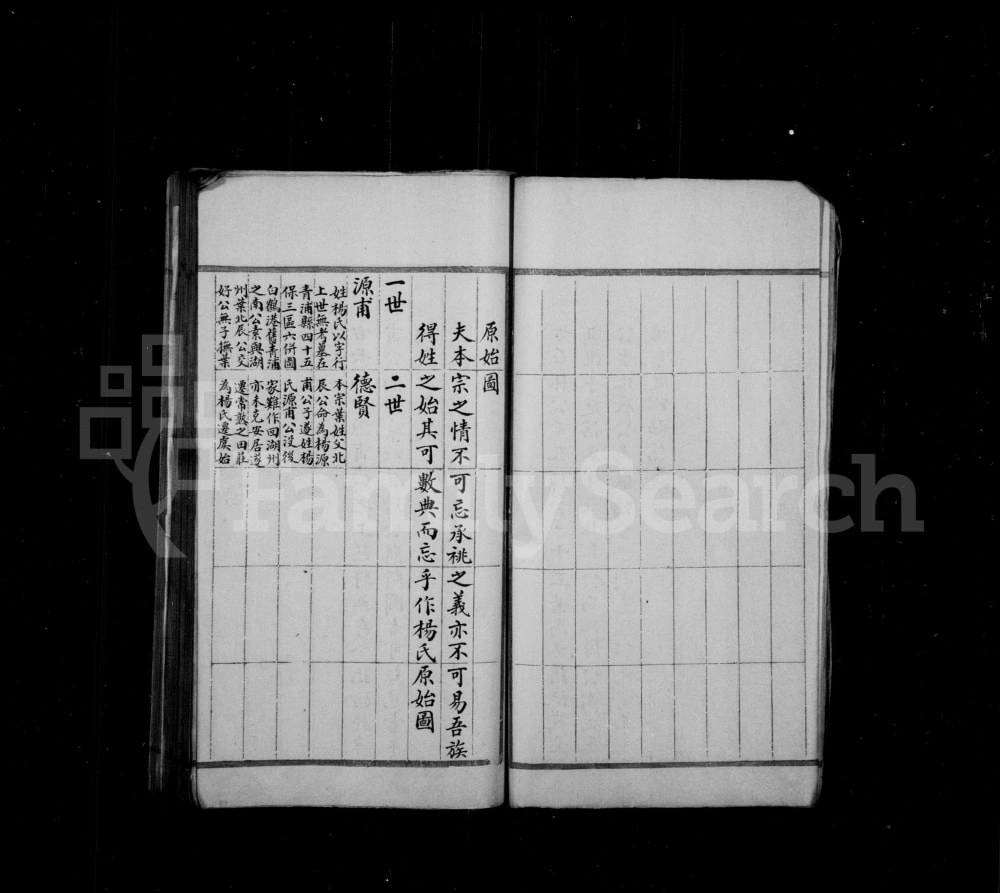 原始圖
夫本宗之情不可忘承祧之義亦不可易吾族
得姓之始其可數典而忘乎作楊氏原始圖
一世
源甫
姓楊氏以字行
上世無考墓在
青浦縣四十五
保三區六併圖
白鶴港舊青浦
之南公素與湖
州葉北辰公交
好公無子撫葉
二世
德賢
本宗葉姓父北
辰公命為楊源
甫公子遂姓楊
氏源甫公沒後
家難作回湖州
亦未克安居遂
遷常熟之田莊
為楊氏遷虞始
FamilySearch